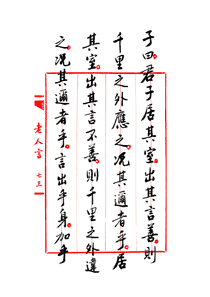 子曰君子居其室出其言善則
千里之外應之况其邇者乎居
其室出其言不善則千里之外違
之况其邇者乎言出乎身加乎
老人言 七三